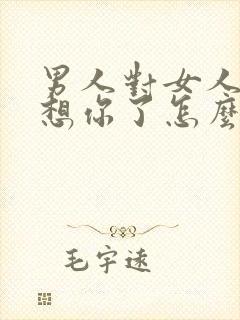 男人對女人
想你了怎麼
毛宇遠